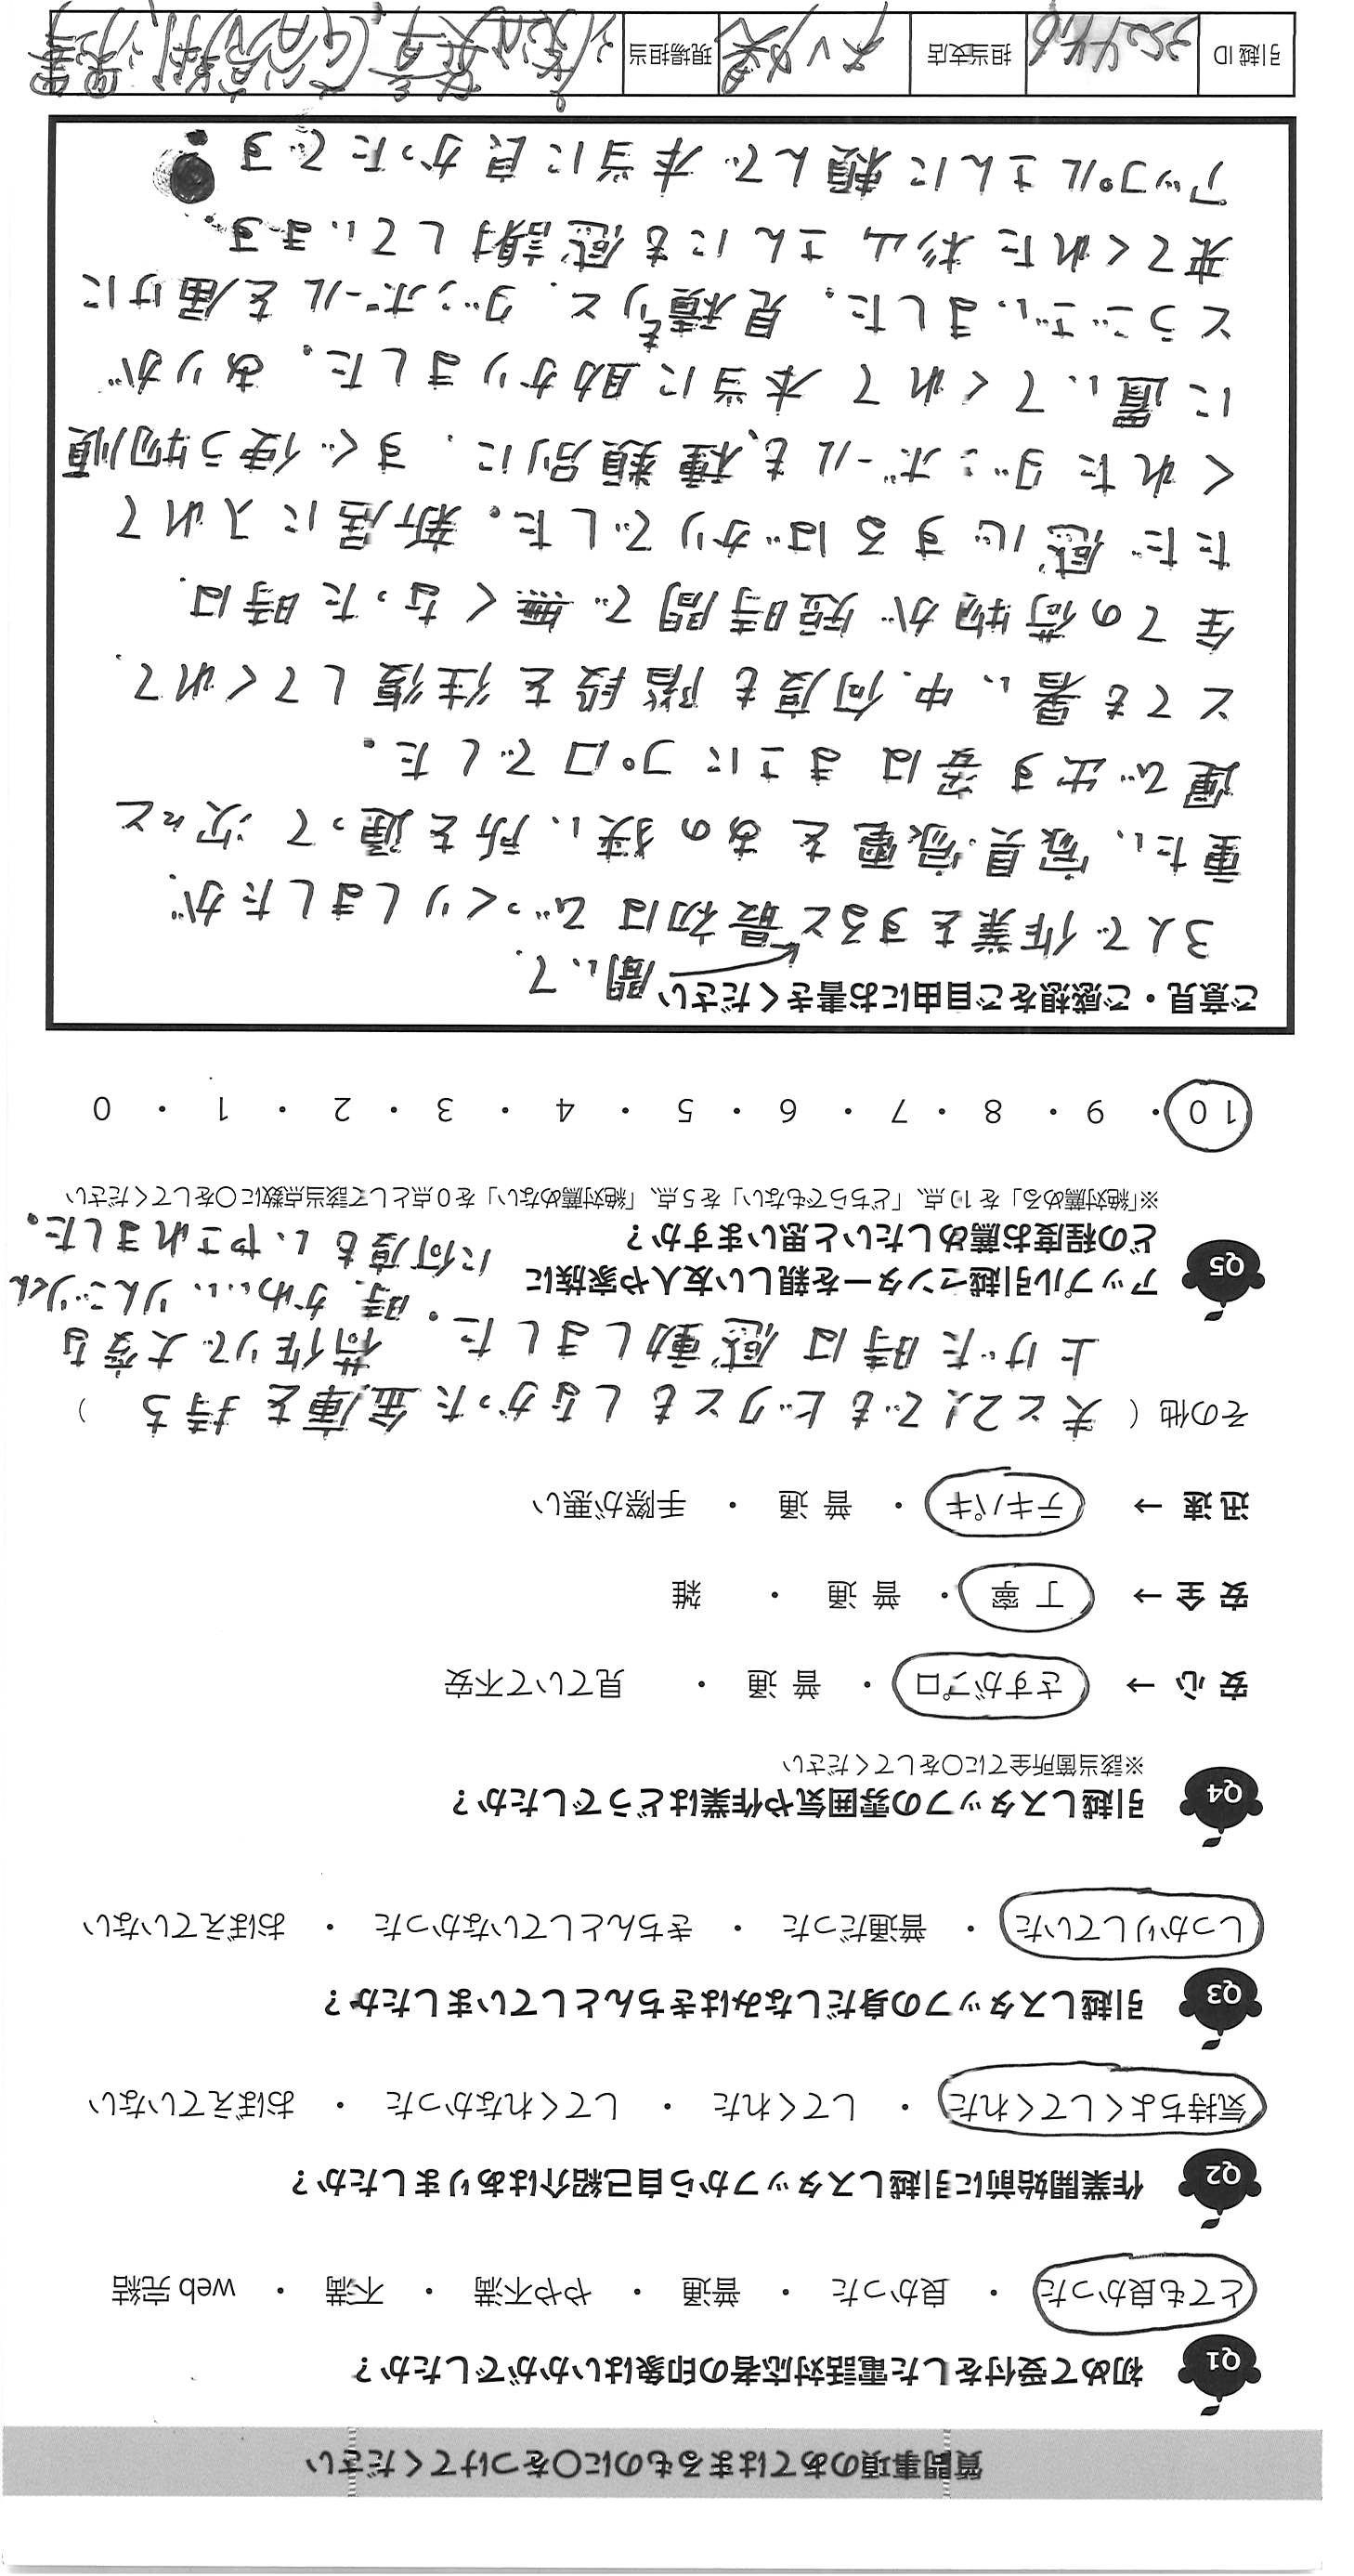 質問事項のあてはまるものに〇をつけてください
Q1 初めて受付をした電話対応者の印象はいかがでしたか？
とても良かった ・ 良かった ・ 普通 ・ やや不満 ・ 不満 ・ web完結
Q2 作業開始前に引越しスタッフから自己紹介はありましたか？
気持ちよくしてくれた ・ してくれた ・ してくれなかった ・ おぼえていない
Q3 引越しスタッフの身だしなみはきちんとしていましたか？
しっかりしていた ・ 普通だった ・ きちんとしていなかった ・ おぼえていない
Q4 引越しスタッフの雰囲気や作業はどうでしたか？
※該当箇所全てに〇をしてください
安心 → さすがプロ ・ 普通 ・ 見ていて不安
安全 → 丁寧 ・ 普通 ・ 雑
迅速 → テキパキ ・ 普通 ・ 手際が悪い
その他（ 夫と2人でもビクともしなかった金庫を持ち ）
上げた時は感動しました。荷作りで大変な
時、かわいいりんごりくん
に何度もいやされました。
Q5 アップル引越センターを親しい友人や家族に
どの程度お薦めしたいと思いますか？
※「絶対薦める」を10点、「どちらでもない」を5点、「絶対薦めない」を0点として該当点数に〇をしてください
10 ・ 9 ・ 8 ・ 7 ・ 6 ・ 5 ・ 4 ・ 3 ・ 2 ・ 1 ・ 0
ご意見・ご感想をご自由にお書きください
聞いて、
3人で作業をすると最初はびっくりしましたが、
重たい、家具家電をあの狭い所を通って次々と
運び出す姿はまさにプロでした。
とても暑い中、何度も階段を往復してくれて、
全ての荷物が短時間で無くなった時は、
ただ感心するばかりでした。新居に入れて
くれたダンボールも、種類別に、すぐ使う物順
に置いてくれて本当に助かりました。ありが
とうございました。見積もりと、ダンボールを届けに
来てくれた杉山さんにも感謝しています。
アップルさんに頼んで本当に良かったです
引越ID
担当支店
現場担当